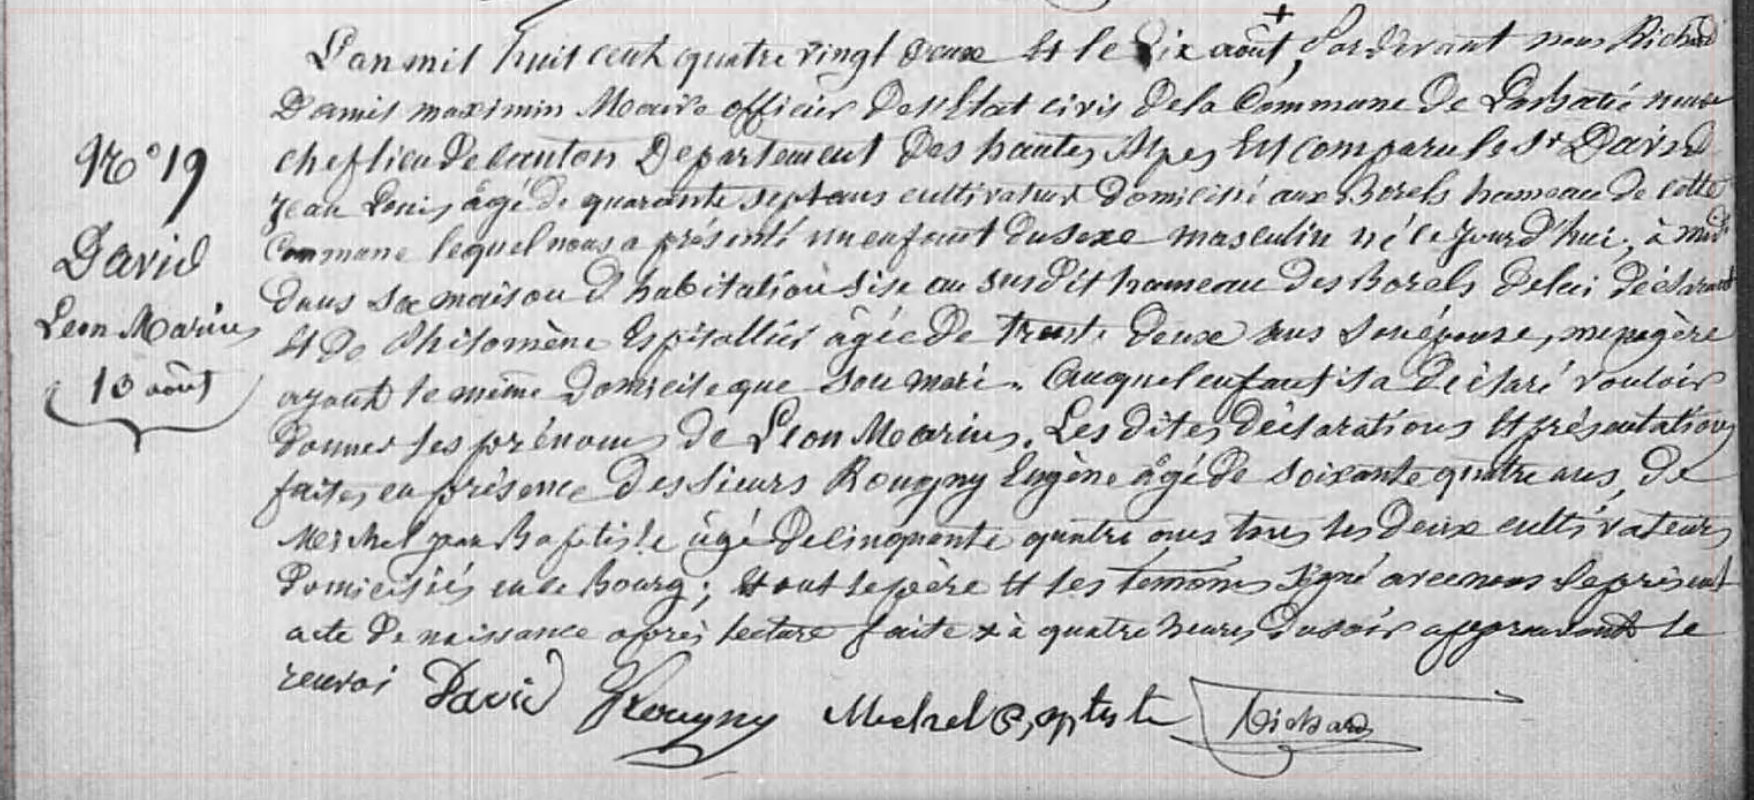 N° 19
David
Leon Marius
10 août
L'an mil huit cent quatre vingt deux Et le Dix août +, Pardevant nous Richard
Damis maximin Maire officier De l'Etat civil De la Commune De Labatie neuve
chef lieu de canton Departement Des hautes Alpes Est comparu le Sr David
Jean Louis âgé De quarante sept ans cultivateur Domicilié aux Borels hameau De cette
Commune lequel nous a présenté un enfant Du sexe masculin né ce jourd'hui, à midi
dans sa maison D'habitation sise au susdit hameau Des Borels De lui Déclarant
Et De Philomène Espitallier âgée De trente Deux ans son épouse, menagère
ayant le même Domicile que son mari. Auquel enfant il a Déclaré vouloir
Donner les prénoms De Leon Marius. Les dites Déclarations Et présentations
faites en présence Des sieurs Rougny Eugène âgé De soixante quatre ans, De
Michel jean Baptiste âgé De cinquante quatre ans tous les Deux cultivateurs
Domiciliés en ce Bourg; Et ont le père Et les temoins signé avec nous le présent
acte De naissance après lecture faite x à quatre heures Du soir approuvant le
renvoi David Rougny Michel Baptiste Richard